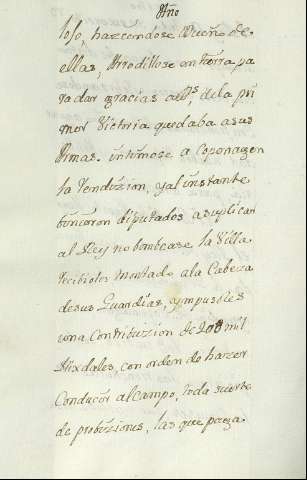 Año
loso, hazcendose Dueño de
ellas, Arrodillose en tierra pa
ra dar gracias a Dˢ, de la pri
mer Victoria que daba a sus
Armas. intimose a Copenagen
la Rendizion, y al instante
binieron diputados a suplicar
al Rey no bombease la Villa.
recibiolos montado a la Cabeza
de sus Guardias, ympusoles
vna Contribuzion de 200 mil
Rixdales, con orden de hazer
Conducir al campo, toda suerte
de probisiones, las que paga